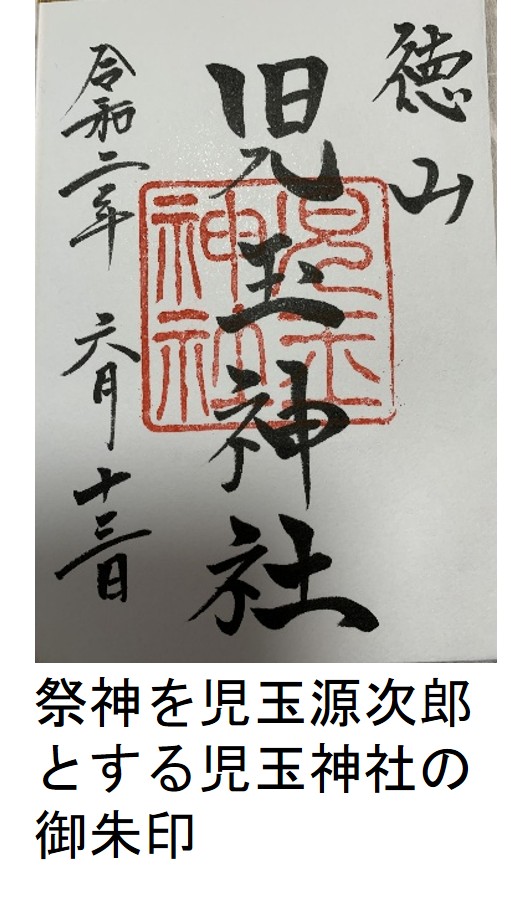 徳山
児玉神社
児玉
神社
令和二年 六月 十三日
祭神を児玉源次郎
とする児玉神社の
御朱印